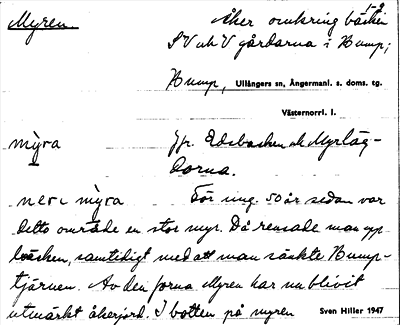 1-2
Myren. åker omkring bäcken
S V och V gårdarna i Bump;
Bump, Ullångers sn, Ångermanl. s. doms. tg.
Västernorrl. l.
mỳra Jfr. Edsbacken och Myrläg-
dorna.
ner i mỳra För ung. 50 år sedan var
detta område en stor myr. Då rensade man upp
bäcken, samtidigt med att man sänkte Bump-
tjärnen. Av den forna Myren har nu blivit
utmärkt åkerjord. I botten på myren
Sven Hiller 1947